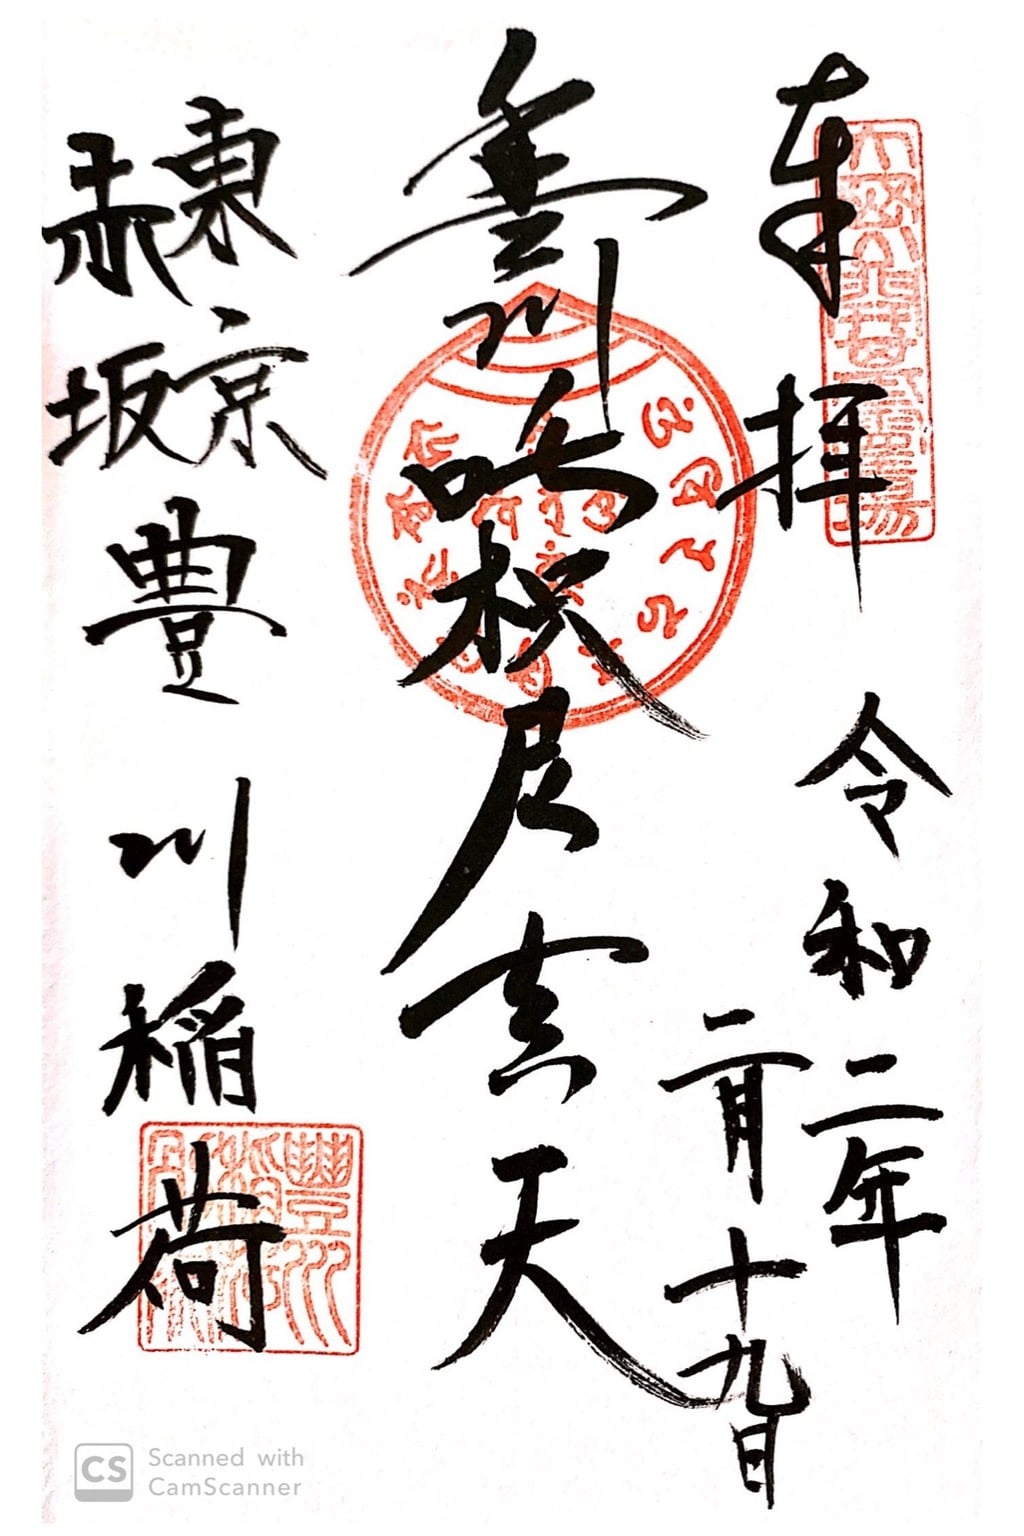 奉拝
令和二年
二月十九日
豊川吒枳尼真天
東京
赤坂
豊川稲荷
CS
Scanned with
CamScanner